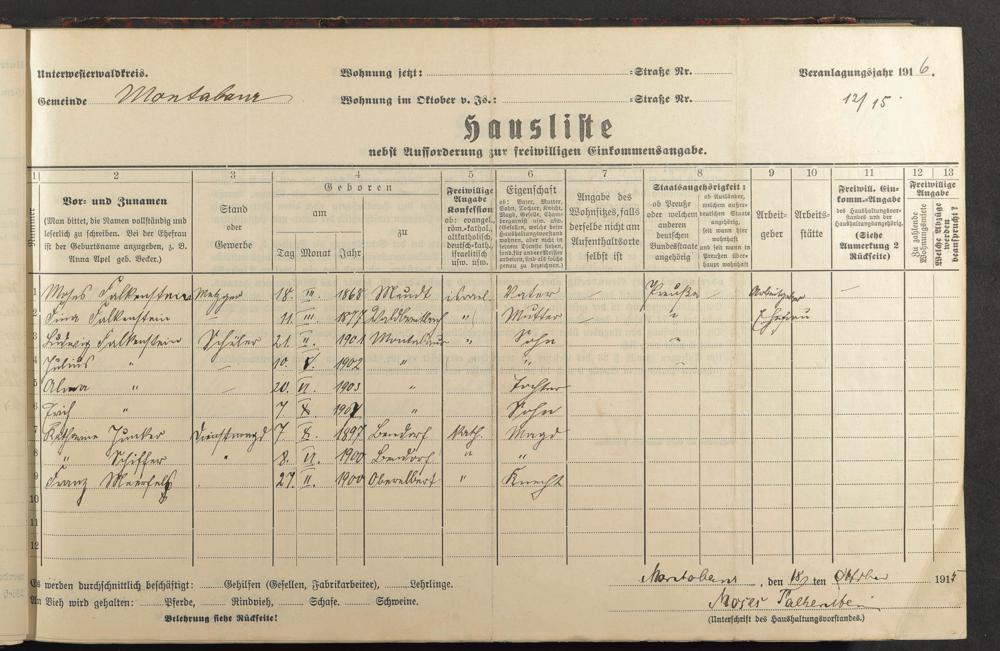 Unterwesterwaldkreis. Wohnung jetzt: -Straße Nr. Veranlagungsjahr 1916.
Gemeinde Montabaur Wohnung im Oktober v. Js.: -Straße Nr. 12/15
Hausliste
nebst Aufforderung zur freiwilligen Einkommensangabe.
1 2 3 4 5 6 7 8 9 10 11 12 13
Nummer
Vor- und Zunamen
(Man bittet, die Namen vollständig und
leserlich zu schreiben. Bei der Ehefrau
ist der Geburtsname anzugeben, z. B.
Anna Apel geb. Becker.)
Stand
oder
Gewerbe
Geboren
am
zu
Tag Monat Jahr
Freiwillige
Angabe
Konfession
ob: evangel.
röm.-kathol.,
altkatholisch
deutsch-kath.,
israelitisch
usw. usw.
Eigenschaft
ob: Vater, Mutter,
Sohn, Tochter, Knecht,
Magd, Geselle,
Angabe des
Wohnsitzes, falls
derselbe nicht am
Aufenthaltsorte
selbst ist
Staatsangehörigkeit:
ob Preuße
oder welchem
anderen
deutschen
Bundesstaate
angehörig
ob Ausländer,
welchem außer-
deutschen Staate
angehörig,
seit wann hier
wohnhaft
und seit wann in
Preußen über-
haupt wohnhaft
Arbeit-
geber
Arbeits-
stätte
Freiwill. Ein-
komm.-Angabe
des Haushaltungsvor-
standes und der
Haushaltungsangehörig.
(Siehe
Anmerkung 2
Rückseite)
Freiwillige
Angabe
Zu zahlende
Wohnungsmiete
Welche Abzüge
werden
beansprucht?
1 Moses Falkenstein Metzger 18. III. 1868 Mundt israel. Vater Preuße Arbeitgeber
2 Falkenstein 11. III 1877 Waldbreitbach " Mutter " Ehefrau
3 Ludwig Falkenstein Schüler 21. II. 1901 Montabaur " Sohn "
4 Julius " 10. V. 1902 " "
5 Alma " 20. VI. 1903 " Tochter
6 Erich " 7. X. 1907 " Sohn
7 Katharina Junker Dienstmagd 7. X. 1897 Bendorf kath. Magd
8 " Schiffer " 8. VI. 1900 Bendorf " "
9 Franz 27. II. 1900 Oberelbert " Knecht
10
11
12
Es werden durchschnittlich beschäftigt: Gehilfen (Gesellen, Fabrikarbeiter), Lehrlinge.
An Vieh wird gehalten: Pferde, Rindvieh, Schafe. Schweine.
Belehrung siehe Rückseite!
Montabaur, den 18 ten Oktober 1915
Moses Falkenstein
(Unterschrift des Haushaltungsvorstandes.)